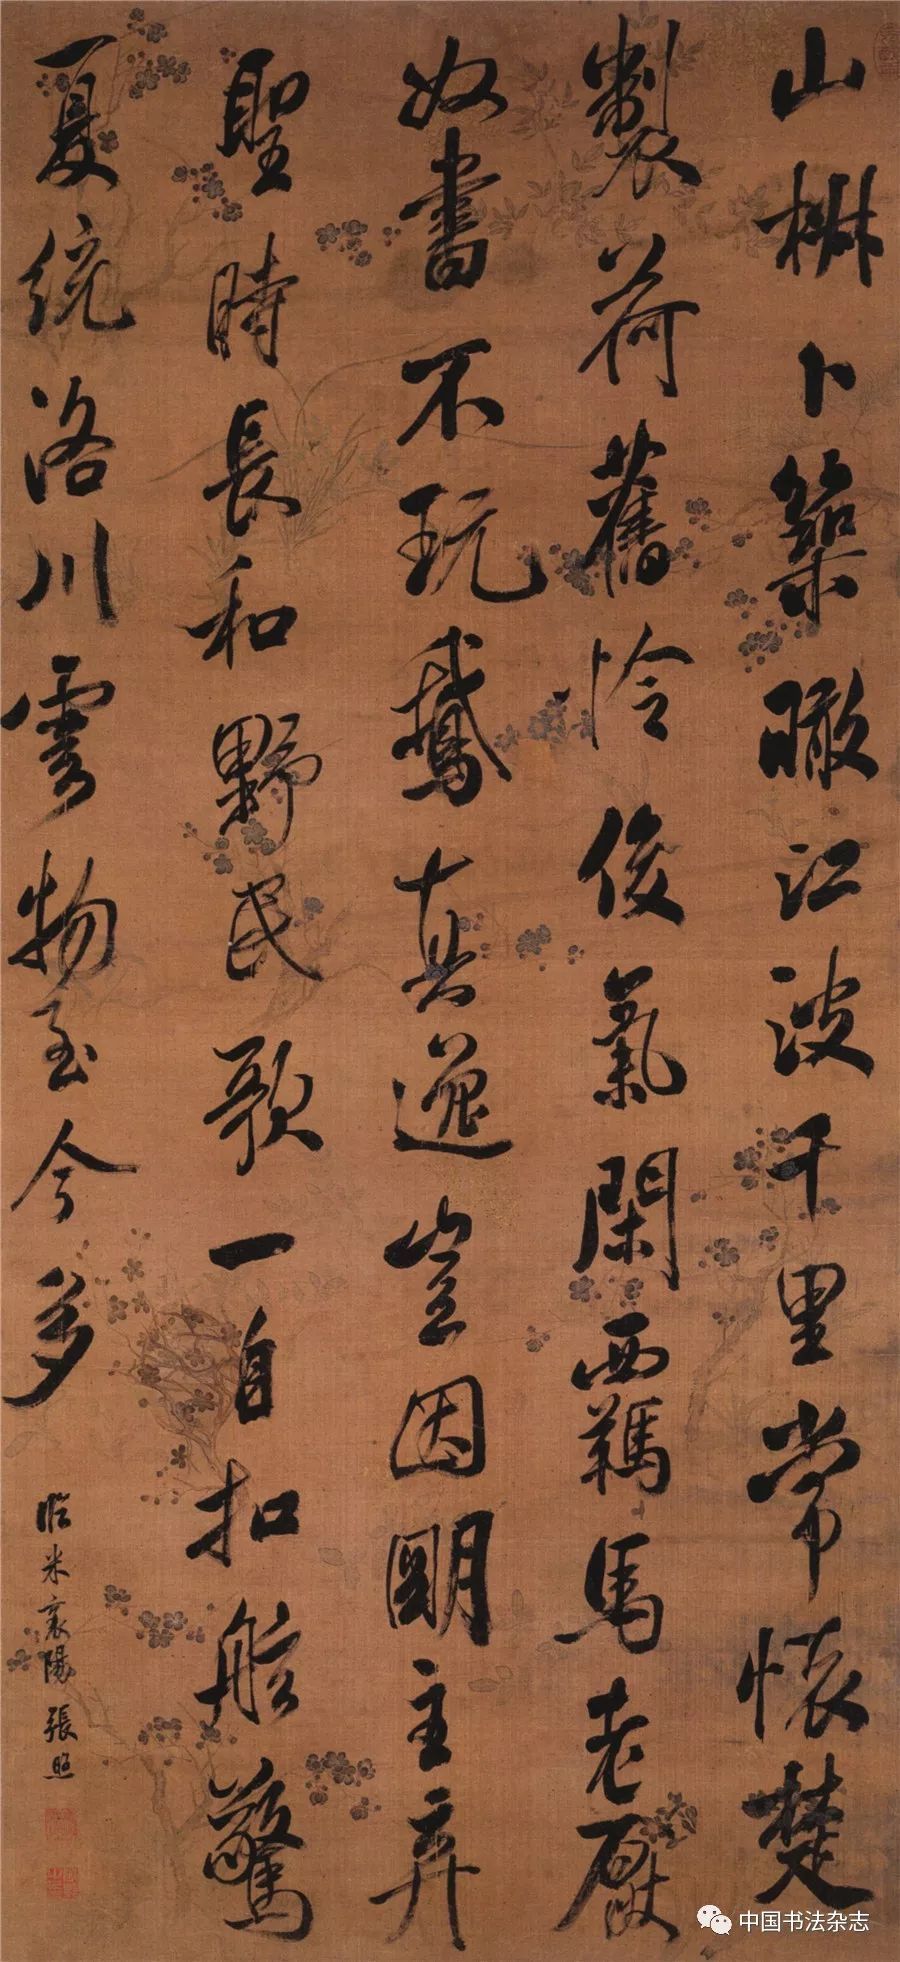 山椒卜築瞰江波千里常懷楚
製荷舊憐俊氣閑覊馬老厭
奴書不玩鵝真逸豈因明主棄
聖時長和野民歌一自扣舷驚
夏統洛川雲物至今多
臨米襄陽 張照
中国书法杂志